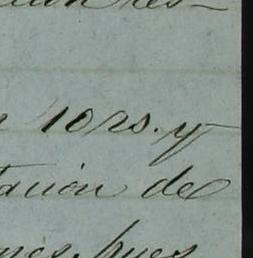 res-
10 rs. y
tacion de
nes, pues